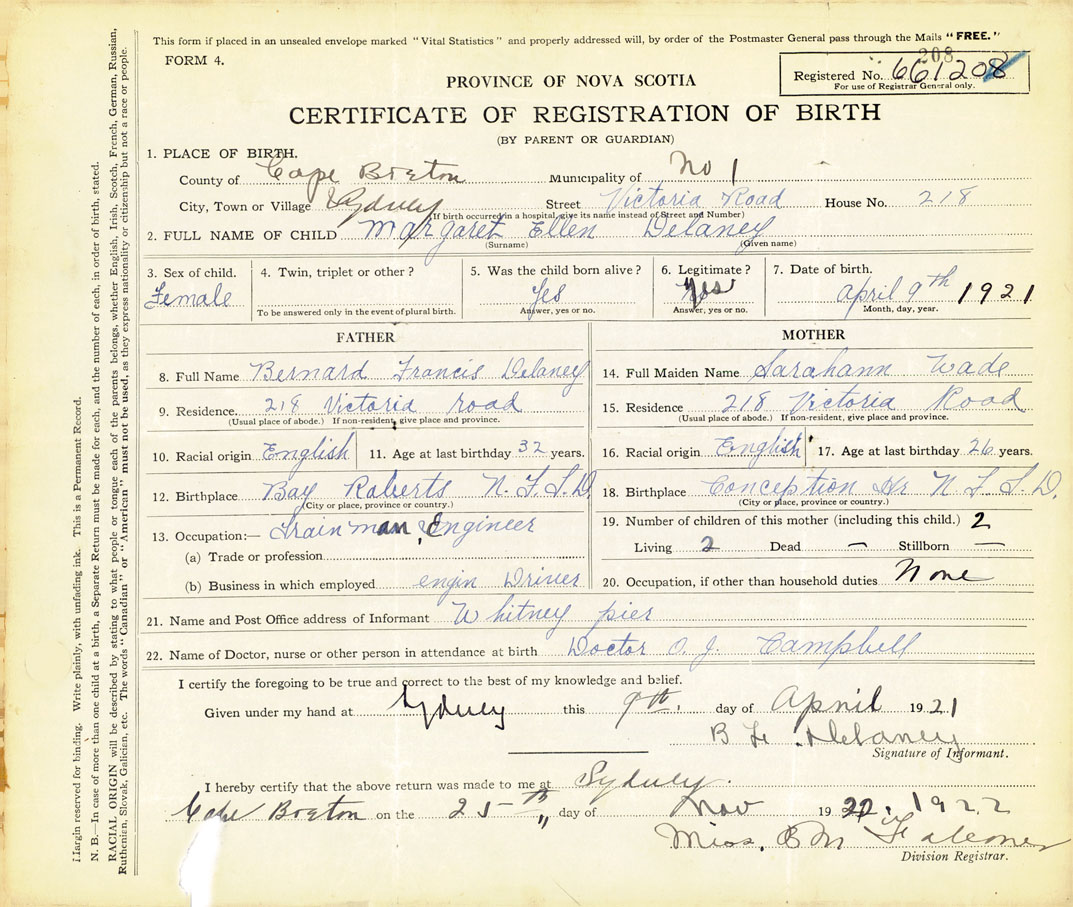 This form if placed in an unsealed envelope marked "Vital Statistics" and properly addressed will, by order of the Postmaster General pass through the Mails "FREE."
FORM 4.
208
Registered No. 661208
For use of Registrar General only.
PROVINCE OF NOVA SCOTIA
CERTIFICATE OF REGISTRATION OF BIRTH
(BY PARENT OR GUARDIAN)
1. PLACE OF BIRTH.
County of Cape Breton Municipality of No 1
City, Town or Village Sydney Street Victoria Road House No. 218
(If birth occurred in a hospital, give its name instead of Street and Number)
2. FULL NAME OF CHILD Margaret Ellen Delaney
(Surname) (Given name)
3. Sex of child. 4. Twin, triplet or other? 5. Was the child born alive? 6. Legitimate? 7. Date of birth.
Female Yes Yes April 9th 1921
To be answered only in the event of plural birth. Answer, yes or no. Answer, yes or no. Month, day, year.
FATHER
8. Full Name Bernard Francis Delaney
9. Residence. 218 Victoria road
(Usual place of abode.) If non-resident, give place and province.
10. Racial origin English 11. Age at last birthday 32 years.
12. Birthplace Bay Roberts N.F.L.D.
(City or place, province or country.)
13. Occupation:— Trainman, Engineer
(a) Trade or profession
(b) Business in which employed engin Driver
MOTHER
14. Full Maiden Name Sarahann Wade
15. Residence 218 Victoria Road
(Usual place of abode.) If non-resident, give place and province.
16. Racial origin English 17. Age at last birthday 26 years.
18. Birthplace Conception Hr N.F.L.D.
(City or place, province or country.)
19. Number of children of this mother (including this child.) 2
Living 2 Dead — Stillborn —
20. Occupation, if other than household duties None
21. Name and Post Office address of Informant Whitney pier
22. Name of Doctor, nurse or other person in attendance at birth Doctor O. J. Campbell
I certify the foregoing to be true and correct to the best of my knowledge and belief.
Given under my hand at Sydney this 9th. day of April 1921
B F Delaney
Signature of Informant.
I hereby certify that the above return was made to me at Sydney.
Cape Breton on the 25th day of Nov 1922. 1922
Miss. M
Division Registrar.
Margin reserved for binding. Write plainly, with unfading ink. This is a Permanent Record.
N. B.—In case of more than one child at a birth, a Separate Return must be made for each, and the number of each, in order of birth, stated.
RACIAL ORIGIN will be described by stating to what people or tongue each of the parents belongs, whether English, Irish, Scotch, French, German, Russian,
Ruthenian, Slovak, Galician, etc. The words "Canadian" or "American" must not be used, as they express nationality or citizenship but not a race or people.